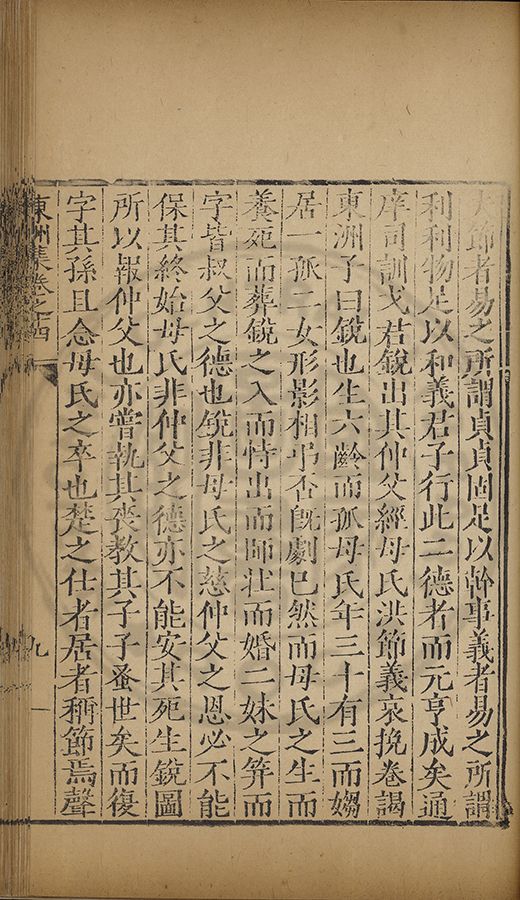 節者易之所謂貞貞固足以幹事義者易之所謂
利利物足以和義君子行此二德者而元亨成矣通
庠司訓戈君銳出其仲父經母氏洪節義哀挽卷謁
東洲子曰銳也生六齡而孤母氏年三十有三而嫠
居一孤二女形影相弔否旣劇已然而母氏之生而
養死而葬銳之入而恃出而師壯而婚二妹之笄而
字皆叔父之德也銳非母氏之慈仲父之恩必不能
保其終始母氏非仲父之德亦不能安其死生銳圖
所以報仲父也亦嘗執其喪教其子子蚤世矣而復
字其孫且念母氏之卒也楚之仕者居者稱節焉聲
東洲集卷之十四
九